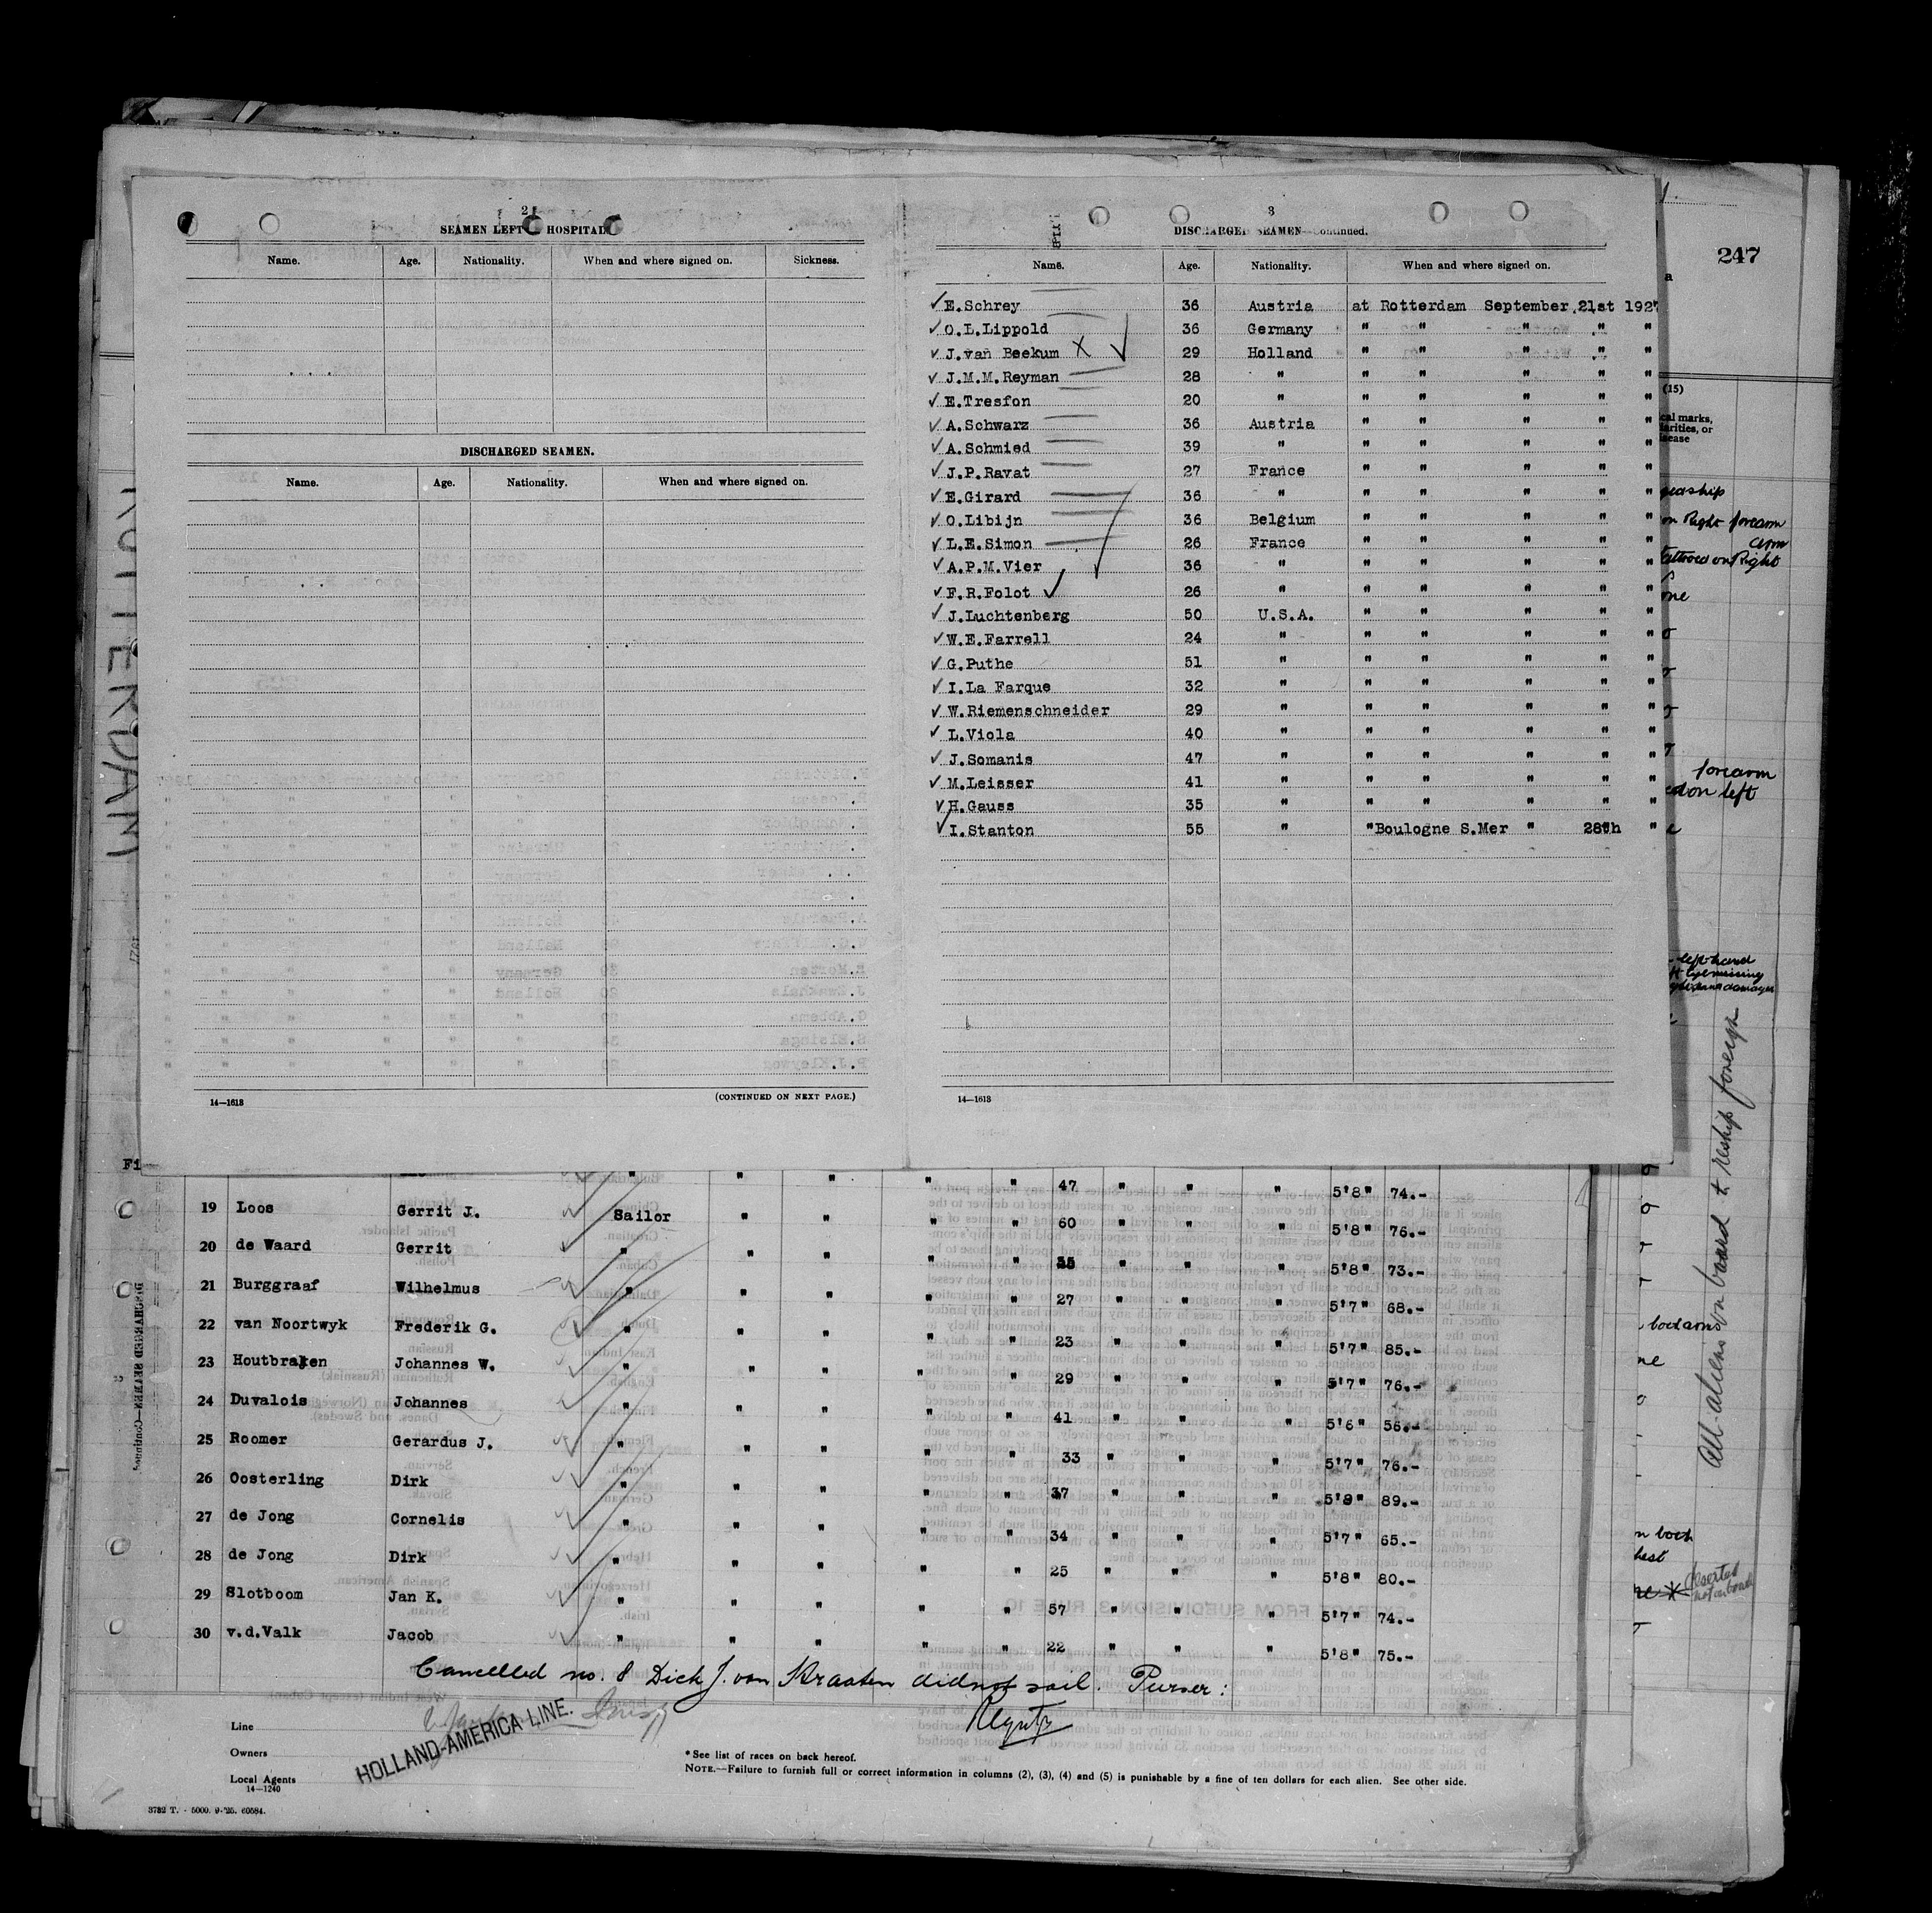 2
SEAMEN LEFT HOSPITAL
Name. Age. Nationality. When and where signed on. Sickness.
DISCHARGED SEAMEN.
Name. Age. Nationality. When and where signed on.
14—1613 (CONTINUED ON NEXT PAGE.)
3
DISCHARGED SEAMEN—Continued.
Name. Age. Nationality. When and where signed on.
E.Schrey 36 Austria at Rotterdam September 21st 1927
O.L.Lippold 36 Germany " " " " "
J.van Beekum X 29 Holland " " " " "
J.M.M.Reyman 28 " " " " " "
E.Tresfon 20 " " " " " "
A.Schwarz 36 Austria " " " " "
A.Schmied 39 " " " " " "
J.P.Ravat 27 France " " " " "
E.Girard 36 " " " " " "
O.Libijn 36 Belgium " " " " "
L.E.Simon 26 France " " " " "
A.P.M.Vier 36 " " " " " "
F.R.Folot 26 " " " " " "
J.Luchtenberg 50 U.S.A. " " " " "
W.E.Farrell 24 " " " " " "
G.Puthe 51 " " " " " "
I.La Farque 32 " " " " " "
W.Riemenschneider 29 " " " " " "
L.Viola 40 " " " " " "
J.Somanis 47 " " " " " "
M.Leisser 41 " " " " " "
H.Gauss 35 " " " " " "
I.Stanton 55 " " Boulogne S.Mer " 28th "
14—1613
247
(15)
cal marks,
arities, or
sease
on Right forearm
arm
on Right
forearm
on left
left hand
All aliens on board & reship foreign
ROTTERDAM
DISCHARGED SEAMEN—Continued
" " " " " 47 " " " 5'8" 74.-
19 Loos Gerrit J. Sailor " " " " 60 " " " 5'8" 76.-
20 de Waard Gerrit " " " " " " " " 5'8" 73.-
21 Burggraaf Wilhelmus " " " " " 27 " " " 5'7" 68.-
22 van Noortwyk Frederik G. " " " " " 23 " " " 5'7" 85.-
23 Houtbraken Johannes W. " " " " " 29 " " " 5'7" 76.-
24 Duvalois Johannes " " " " " 41 " " " 5'6" 56.-
25 Roomer Gerardus J. " " " " " 33 " " " 5'7" 76.-
26 Oosterling Dirk " " " " " 37 " " " 5'9" 89.-
27 de Jong Cornelis " " " " " 34 " " " 5'7" 65.-
28 de Jong Dirk " " " " " 25 " " " 5'8" 80.-
29 Slotboom Jan K. " " " " " 57 " " " 5'7" 74.-
30 v.d.Valk Jacob " " " " " 22 " " " 5'8" 75.-
Cancelled no. 8 Dick J. van Kraaten did not sail. Purser:
Line
HOLLAND-AMERICA LINE.
Owners
Local Agents
14—1240
* See list of races on back hereof.
NOTE.—Failure to furnish full or correct information in columns (2), (3), (4) and (5) is punishable by a fine of ten dollars for each alien. See other side.
3732 T. - 5000. 9-'25. 60584.